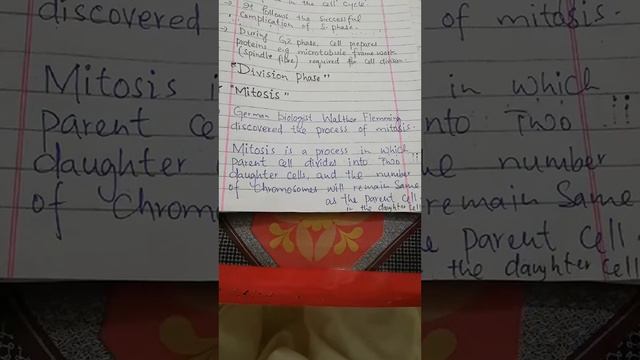 in the cell cycle.
→ It follows the successful
Complication of S-phase.
→ During G2 phase, Cell prepares
proteins e.g microtubule frame work
(spindle fibre) required for cell division.
"Division Phase"
"Mitosis"
German biologist Walther Flemming
discovered the process of mitosis.
Mitosis is a process in which
parent cell divides into Two
daughter cells, and the number
of Chromosomes will remain Same
as the parent cell
in the daughter cell
discovered
of mitosis.
Mitosis i
in which
parent ce
nto Two
daughter
e number
of Chrom
remain Same
e parent cell
the daughter cell